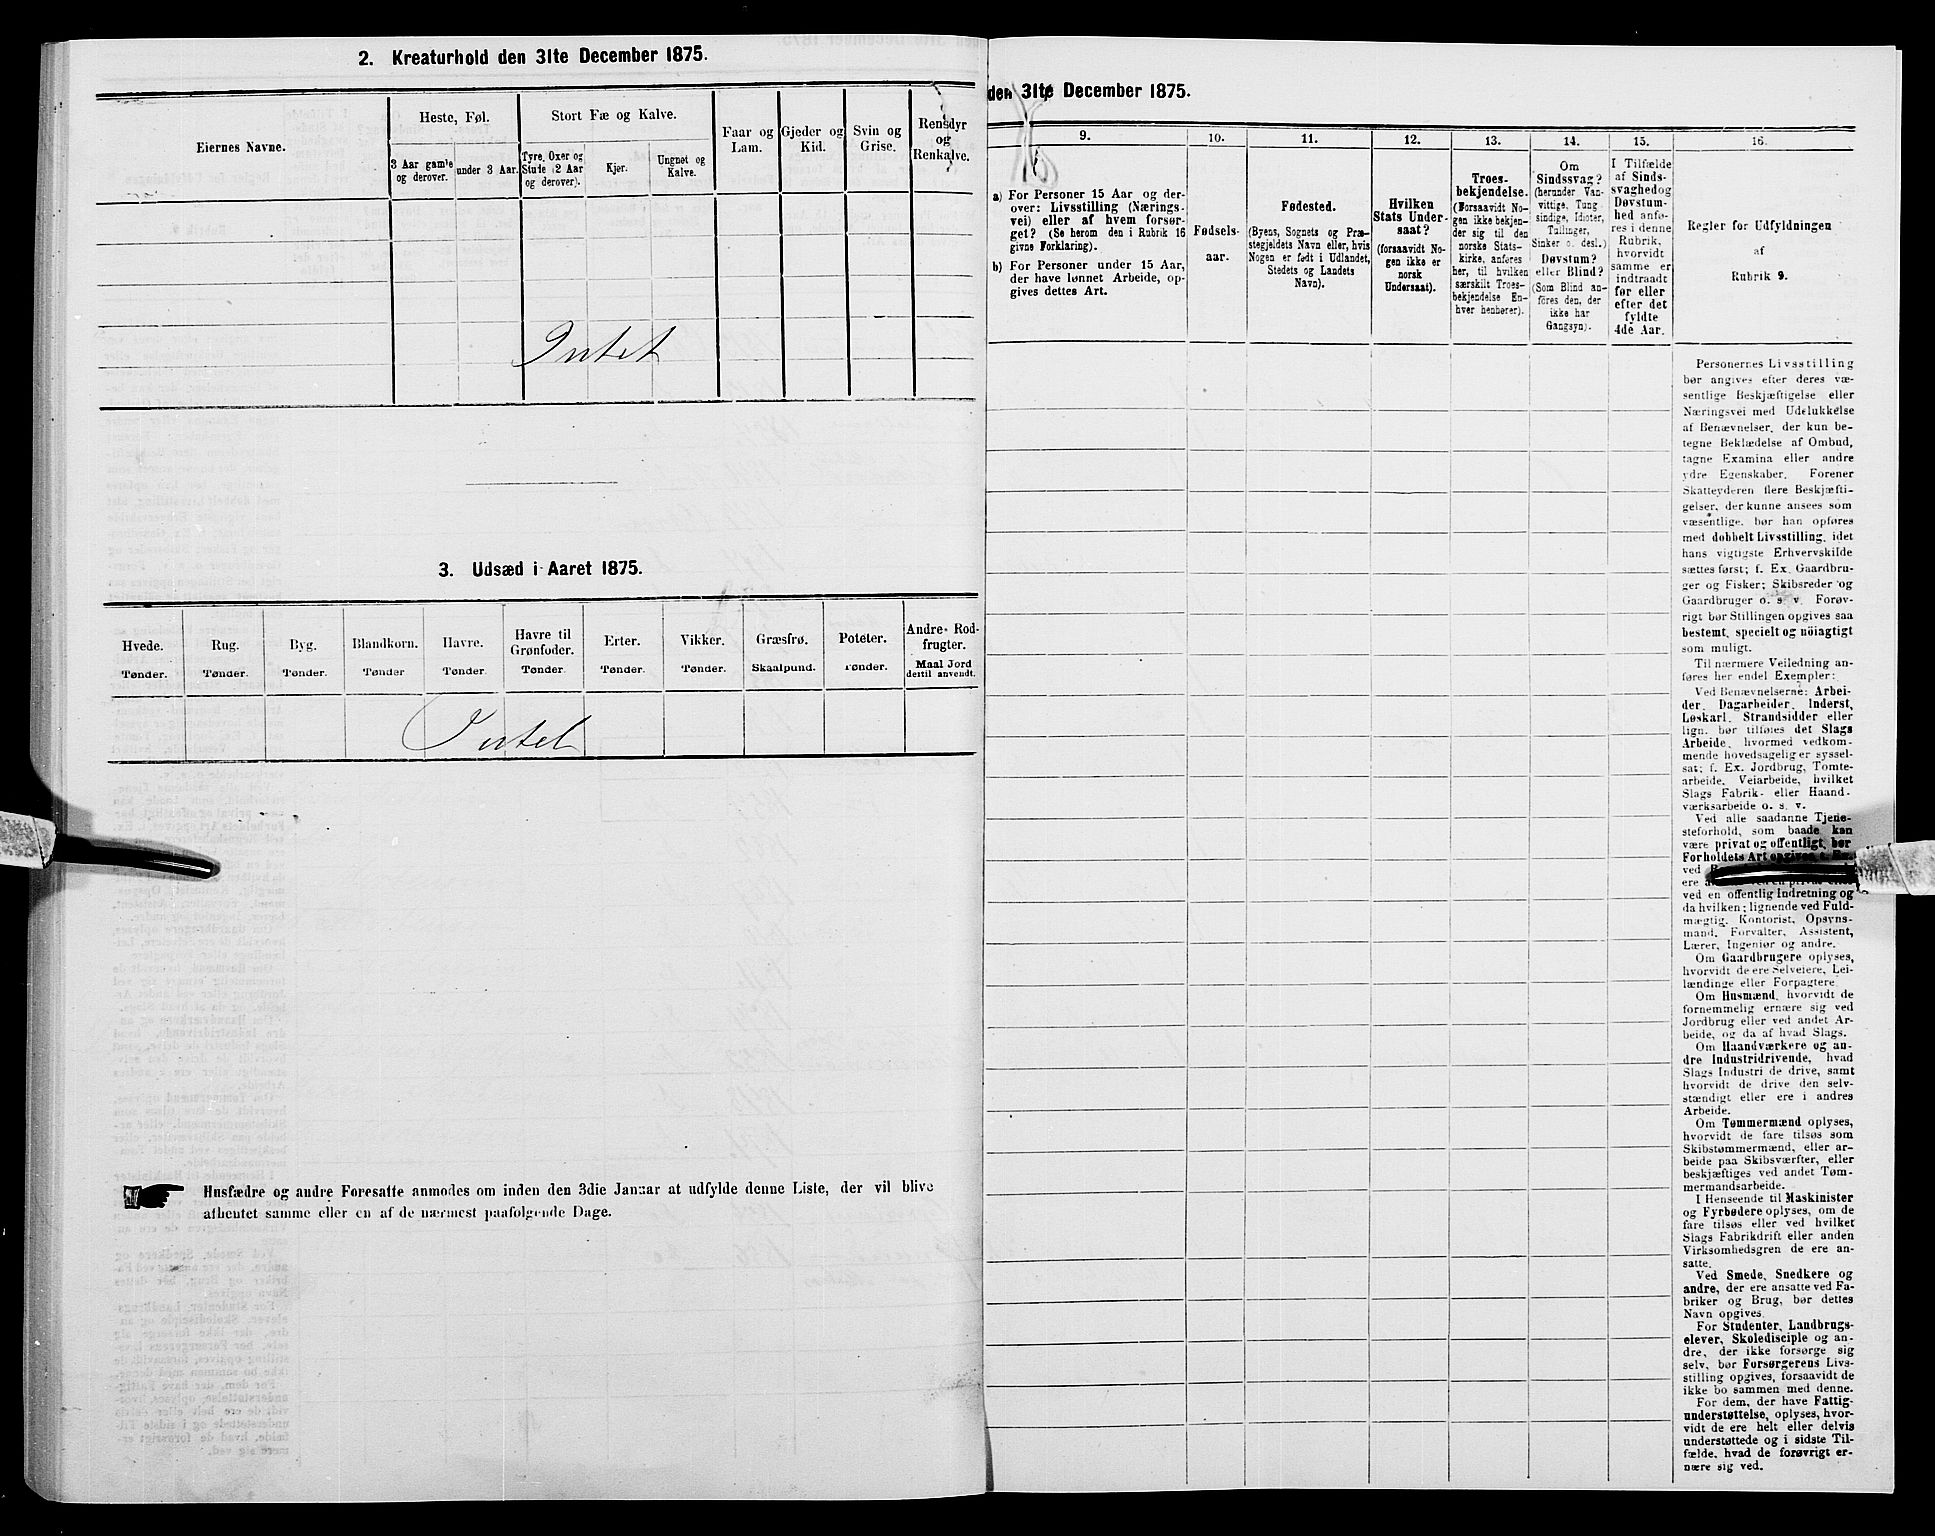 2. Kreaturhold den 31te December 1875.
Eiernes Navne.
Heste, Føl.
3 Aar gamle
og derover.
under 3 Aar.
Stort Fæ og Kalve.
Tyre, Oxer og
Stute (2 Aar
og derover).
Kjør.
Ungnøt og
Kalve.
Faar og
Lam.
Gjeder og
Kid.
Svin og
Grise.
Rensdyr
og
Renkalve.
Intet
3. Udsæd i Aaret 1875.
Hvede.
Tønder.
Rug.
Tønder.
Byg.
Tønder.
Blandkorn.
Tønder
Havre.
Tønder.
Havre til
Grønfoder.
Tønder.
Erter.
Tønder.
Vikker.
Tønder.
Græsfrø.
Skaalpund.
Poteter.
Tønder.
Andre Rod-
frugter.
Maal Jord
dertil anvendt.
Intet
Husfædre og andre Foresatte anmodes om inden den 3die Januar at udfylde denne Liste, der vil blive
afhentet samme eller en af de nærmest paafølgende Dage.
den 31te December 1875.
9.
a) For Personer 15 Aar og der-
over: Livsstilling (Nærings-
vei) eller af hvem forsør-
get? (Se herom den i Rubrik 16
givne Forklaring).
b) For Personer under 15 Aar,
der have lønnet Arbeide, op-
gives dettes Art.
10.
Fødsels-
aar.
11.
Fødested.
(Byens, Sognets og Præ-
stegjeldets Navn eller, hvis
Nogen er født i Udlandet,
Stedets og Landets
Navn).
12.
Hvilken
Stats Under-
saat?
(forsaavidt No-
gen ikke er
norsk
Undersaat).
13.
Troes-
bekjendelse.
(Forsaavidt No-
gen ikke bekjen-
der sig til den
norske Stats-
kirke, anføres
her, til hvilken
særskilt Troes-
bekjendelse En-
hver henhører).
14.
Om
Sindssvag?
(herunder Van-
vittige, Tung
sindige, Idioter,
Tullinger,
Sinker o. desl.)
Døvstum?
eller Blind?
(Som Blind an-
føres den, der
ikke har
Gangsyn).
15.
I Tilfælde
af Sinds-
svaghed og
Døvstum-
hed anfø-
res i denne
Rubrik,
hvorvidt
samme er
indtraadt
før eller
efter det
fyldte
4de Aar.
16.
Regler for Udfyldningen
af
Rubrik 9.
Personernes Livsstilling
bør angives efter deres væ-
sentlige Beskjæftigelse eller
Næringsvei med Udelukkelse
af Benævnelser, der kun be-
tegne Beklædelse af Ombud,
tagne Examina eller andre
ydre Egenskaber. Forener
Skatteyderen flere Beskjæfti-
gelser, der kunne ansees som
væsentlige, bør han opføres
med dobbelt Livsstilling, idet
hans vigtigste Erhvervskilde
sættes først; f. Ex. Gaardbru-
ger og Fisker; Skibsreder og
Gaardbruger o. s. v. Forøv-
rigt bør Stillingen opgives saa
bestemt, specielt og nøiagtigt
som muligt.
Til nærmere Veiledning an-
føres her endel Exempler:
Ved Benævnelserne: Arbei-
der, Dagarbeider, Inderst,
Løskarl, Strandsidder eller
lign. bør tilføies det Slags
Arbeide, hvormed vedkom-
mende hovedsagelig er syssel-
sat; f. Ex. Jordbrug, Tomte-
arbeide, Veiarbeide, hvilket
Slags Fabrik- eller Haand-
værksarbeide o. s. v.
Ved alle saadanne Tjene-
steforhold, som baade kan
være privat og offentligt, bør
Forholdets Art opgives, f. Ex.
ved
ere
ved en offentlig Indretning og
da hvilken; lignende ved Fuld-
mægtig, Kontorist, Opsyns-
mand, Forvalter, Assistent,
Lærer, Ingeniør og andre.
Om Gaardbrugere oplyses,
hvorvidt de ere Selveiere, Lei-
lændinge eller Forpagtere
Om Husmænd, hvorvidt de
fornemmelig ernære sig ved
Jordbrug eller ved andet Ar-
beide, og da af hvad Slags.
Om Haandværkere og an-
dre Industridrivende, hvad
Slags Industri de drive, samt
hvorvidt de drive den selv-
stændigt eller ere i andres
Arbeide.
Om Tømmermænd oplyses,
hvorvidt de fare tilsøs som
Skibstømmermænd, eller ar-
beide paa Skibsværfter, eller
beskjæftiges ved andet Tøm-
mermandsarbeide.
I Henseende til Maskinister
og Fyrbødere oplyses, om de
fare tilsøs eller ved hvilket
Slags Fabrikdrift eller anden
Virksomhedsgren de ere an-
satte.
Ved Smede, Snedkere og
andre, der ere ansatte ved Fa-
briker og Brug, bør dettes
Navn opgives
For Studenter, Landbrugs-
elever, Skoledisciple og an-
dre, der ikke forsørge sig
selv, bør Forsørgerens Livs-
stilling opgives, forsaavidt de
ikke bo sammen med denne.
For dem, der have Fattig-
understøttelse, oplyses, hvor-
vidt de ere helt eller delvis
understøttede og i sidste Til-
fælde, hvad de forøvrigt er-
nære sig ved.